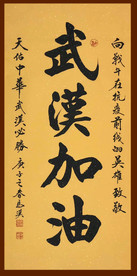 向戰斗在抗疫前线的英雄致敬
武漢加油
天佑中華武漢必勝 庚子之春